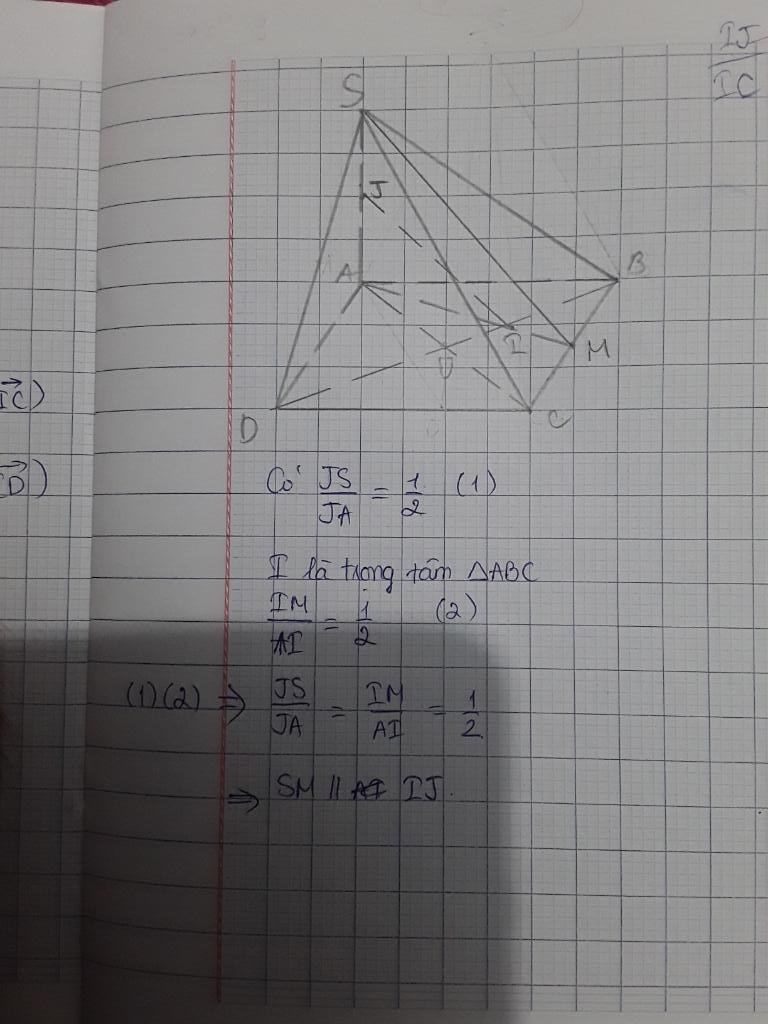 IJ
IC
S
J
A
B
I
M
O
D
C
IC)
D)
Có JS/JA = 1/2 (1)
I là trọng tâm ΔABC
IM/AI = 1/2 (2)
(1)(2) ⇒ JS/JA = IM/AI = 1/2
⇒ SM // IJ.